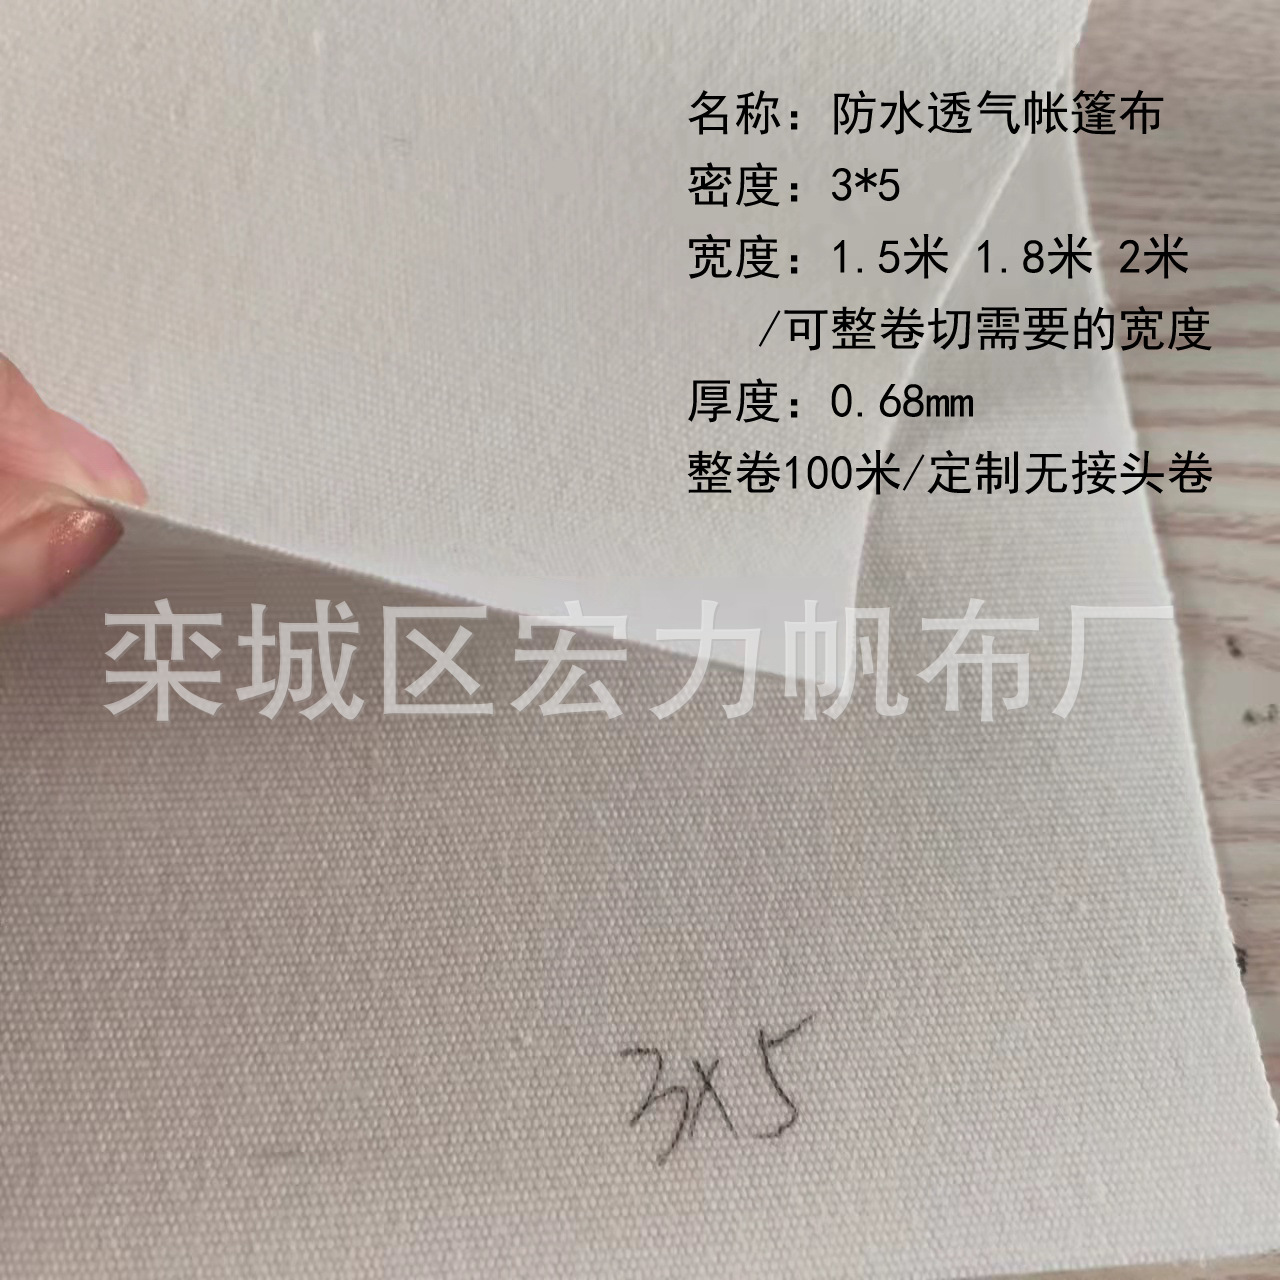 名称：防水透气帐篷布
密度：3*5
宽度：1.5米 1.8米 2米
/可整卷切需要的宽度
厚度：0.68mm
整卷100米/定制无接头卷
栾城区宏力帆布厂
3×5